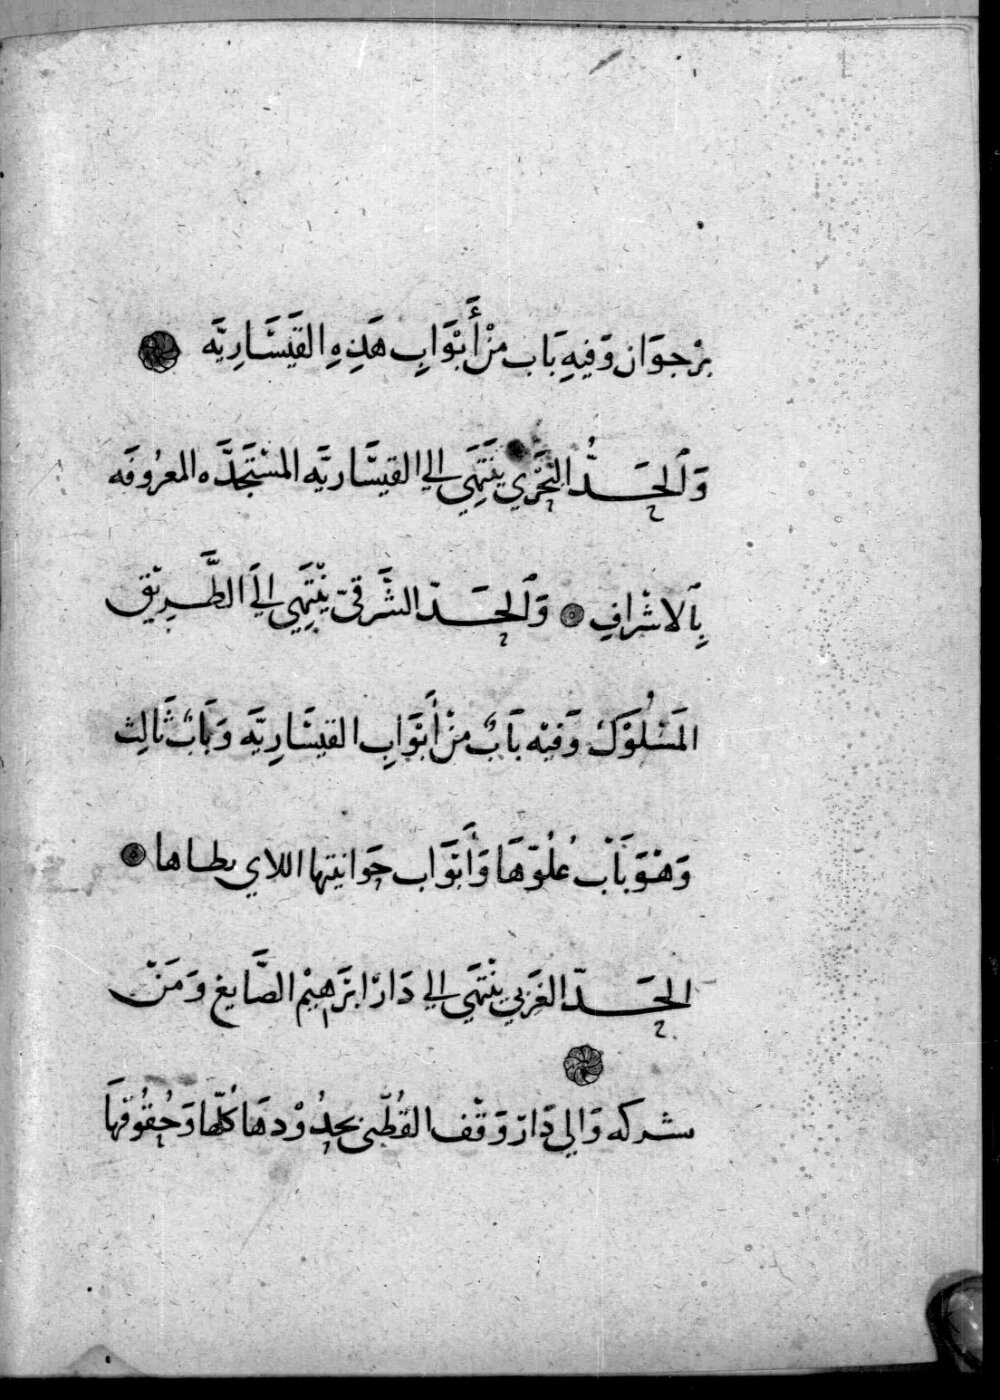 بِرْجوَان وَفيهِ بَاب مِنْ أَبْوَابِ هَذِهِ القَيْسَارِيَّه
وَالحَدُّ البَحَرَي يَنْتَهَي الي القيسَّاريَّه المسْتَجَدَّه المعرُوفَه
بِالاشْرافِ وَالحَدّ الشَّرقيّ يَنْتَهَي اليَ الطَّرِيْق
المَسْلُوْكْ وَفيْه بَابٌ مِنْ أَبْوَابِ القيسَارِيَّه وَبَابٌ ثَالِث
وَهْوَ بَابْ عُلْوّهَا وَأَبْوَاب حَوانيتها اللاي بظاها
الحَدّ الغَرَبي يَنْتَهَي الي دَارْ ابْرَهِيْم الصَّايغ وَمَنْ
شركه وَالي دَارْ وَقْف القُطْبي بحدُوْدهَا كُلّها وَحُقُوْقهَا